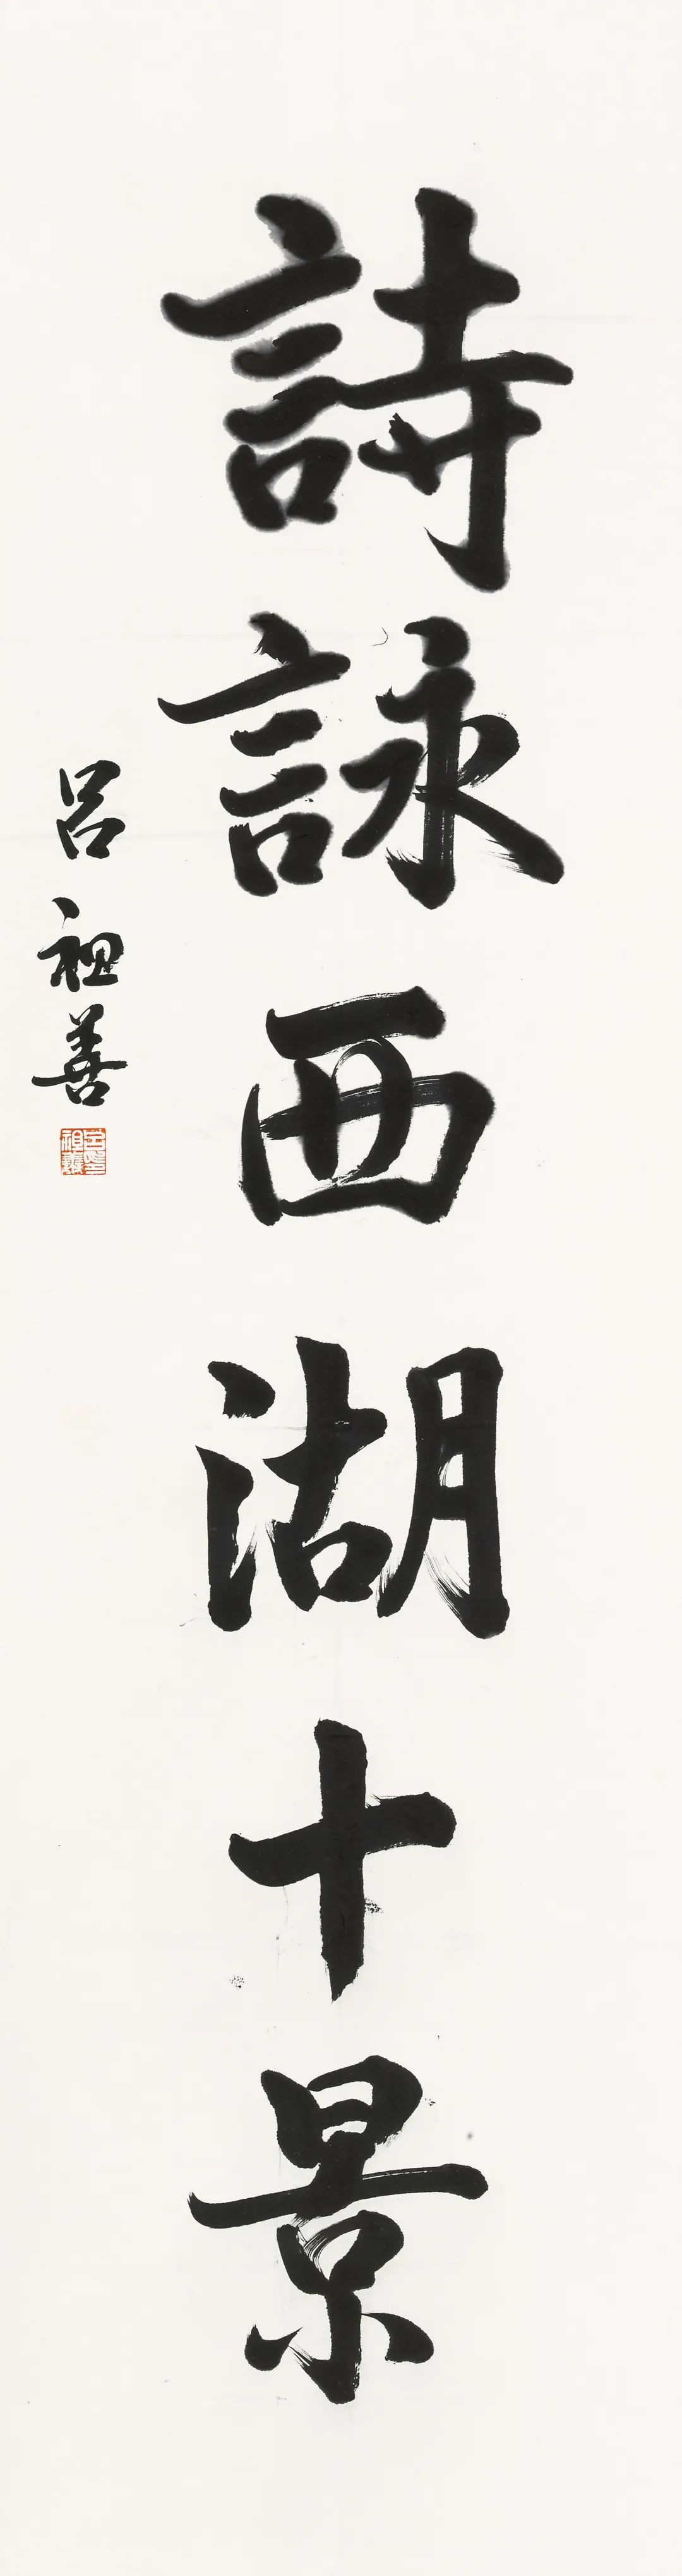 詩詠西湖十景
呂祖善
呂祖善印